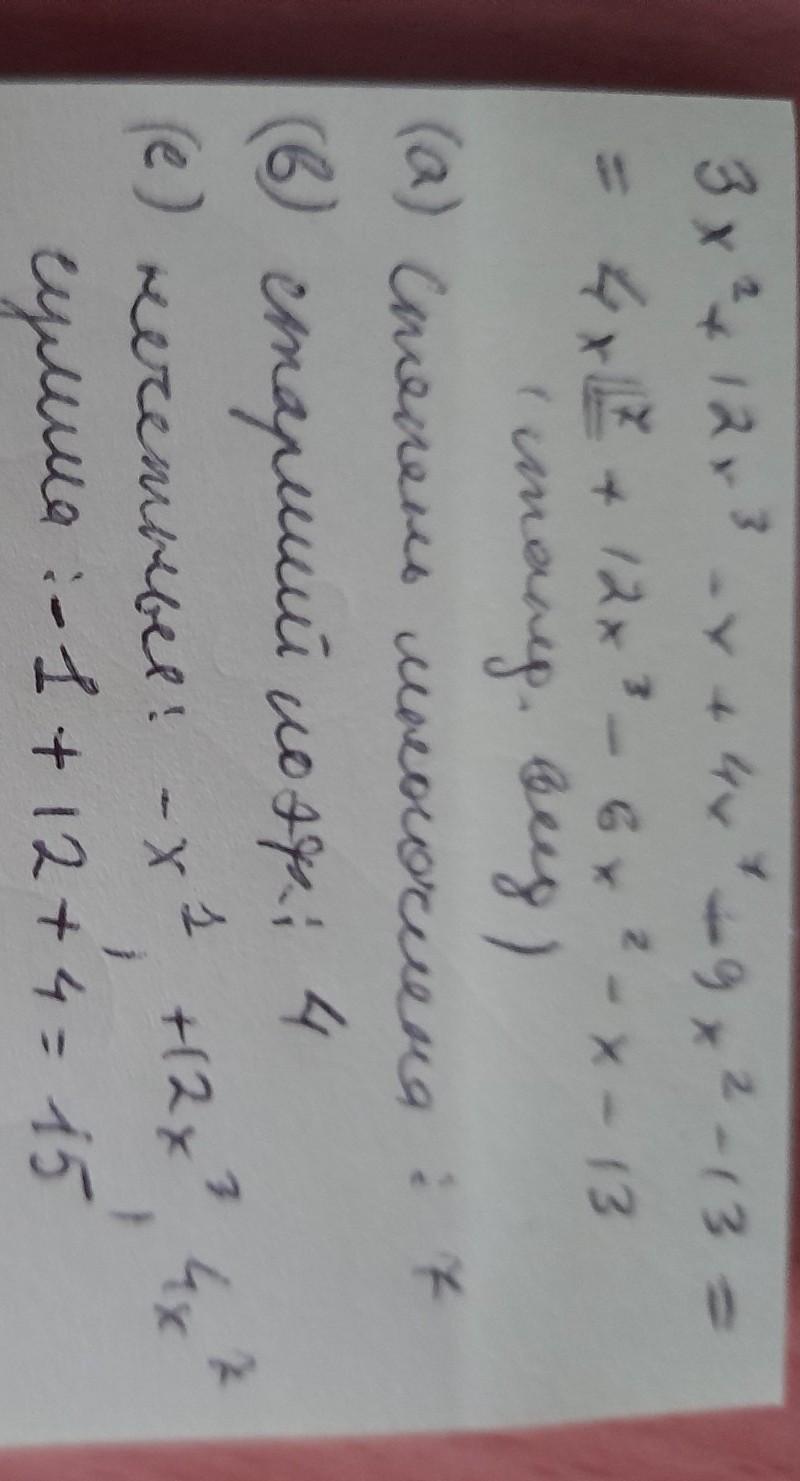 3x² + 12x³ - x + 4x⁷ - 9x² - 13 =
= 4x⁷ + 12x³ - 6x² - x - 13
(станд. вид)
(а) Степень многочлена : 7
(в) старший коэф.: 4
(с) нечетные: -x¹, +12x³, 4x⁷
сумма : -1 + 12 + 4 = 15